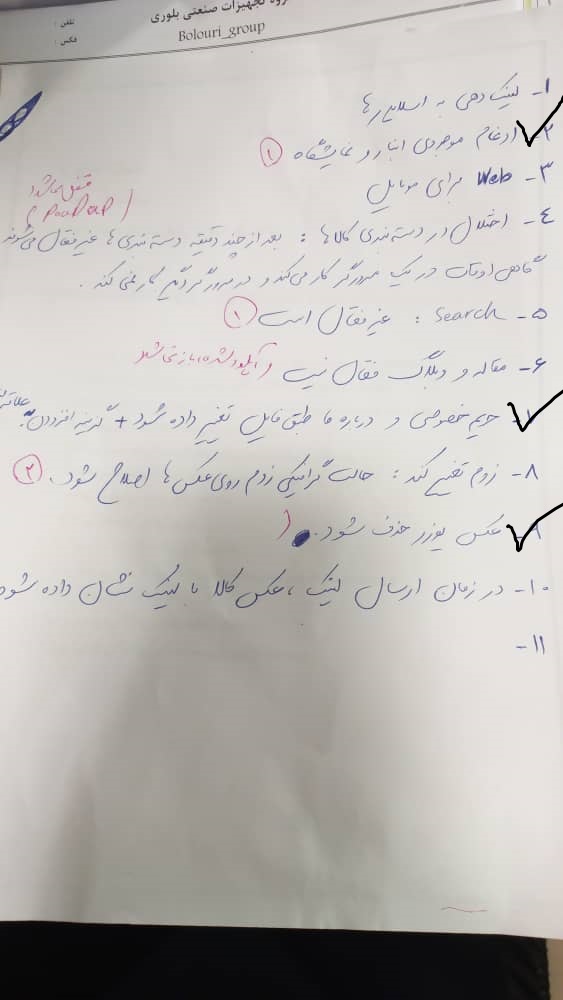 گروه تجهیزات صنعتی بلوری
Bolouri_group
تلفن :
فکس :
۱- لینک دهی به اسلایدرها
۲- ادغام موجودی انبار و نمایشگاه ۱
۳- Web برای موبایل
۴- اختلال در دسته بندی کالاها : بعد از چند دقیقه دسته بندی ها غیر فعال می شوند
گاهی اوقات در یک مرورگر کار می کند و در مرورگر دیگر کار نمی کند .
۵- Search : غیر فعال است ۱
۶- مقاله و وبلاگ فعال نیست
حریم خصوصی و درباره ما طبق فایل تغییر داده شود + گزینه افزودن
۸- زوم تغییر کند : حالت گرافیکی زوم روی عکس ها اصلاح شود. ۲
۹- عکس یوزر حذف شود.
۱۰- در زمان ارسال لینک ، عکس کالا با لینک نشان داده شود
۱۱-